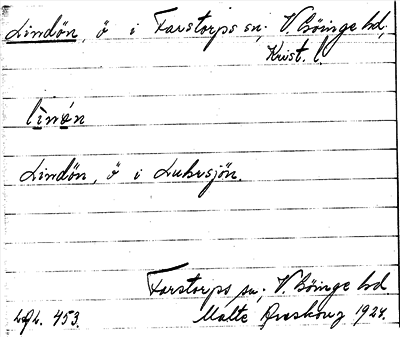 Lindön, ö i Farstorps sn; V. Göinge hd,
Krist. l.
linön
Lindön, ö i Lubusjön.
Farstorps sn; V Göinge hd
L.gL. 453. Malte Areskoug 1924.